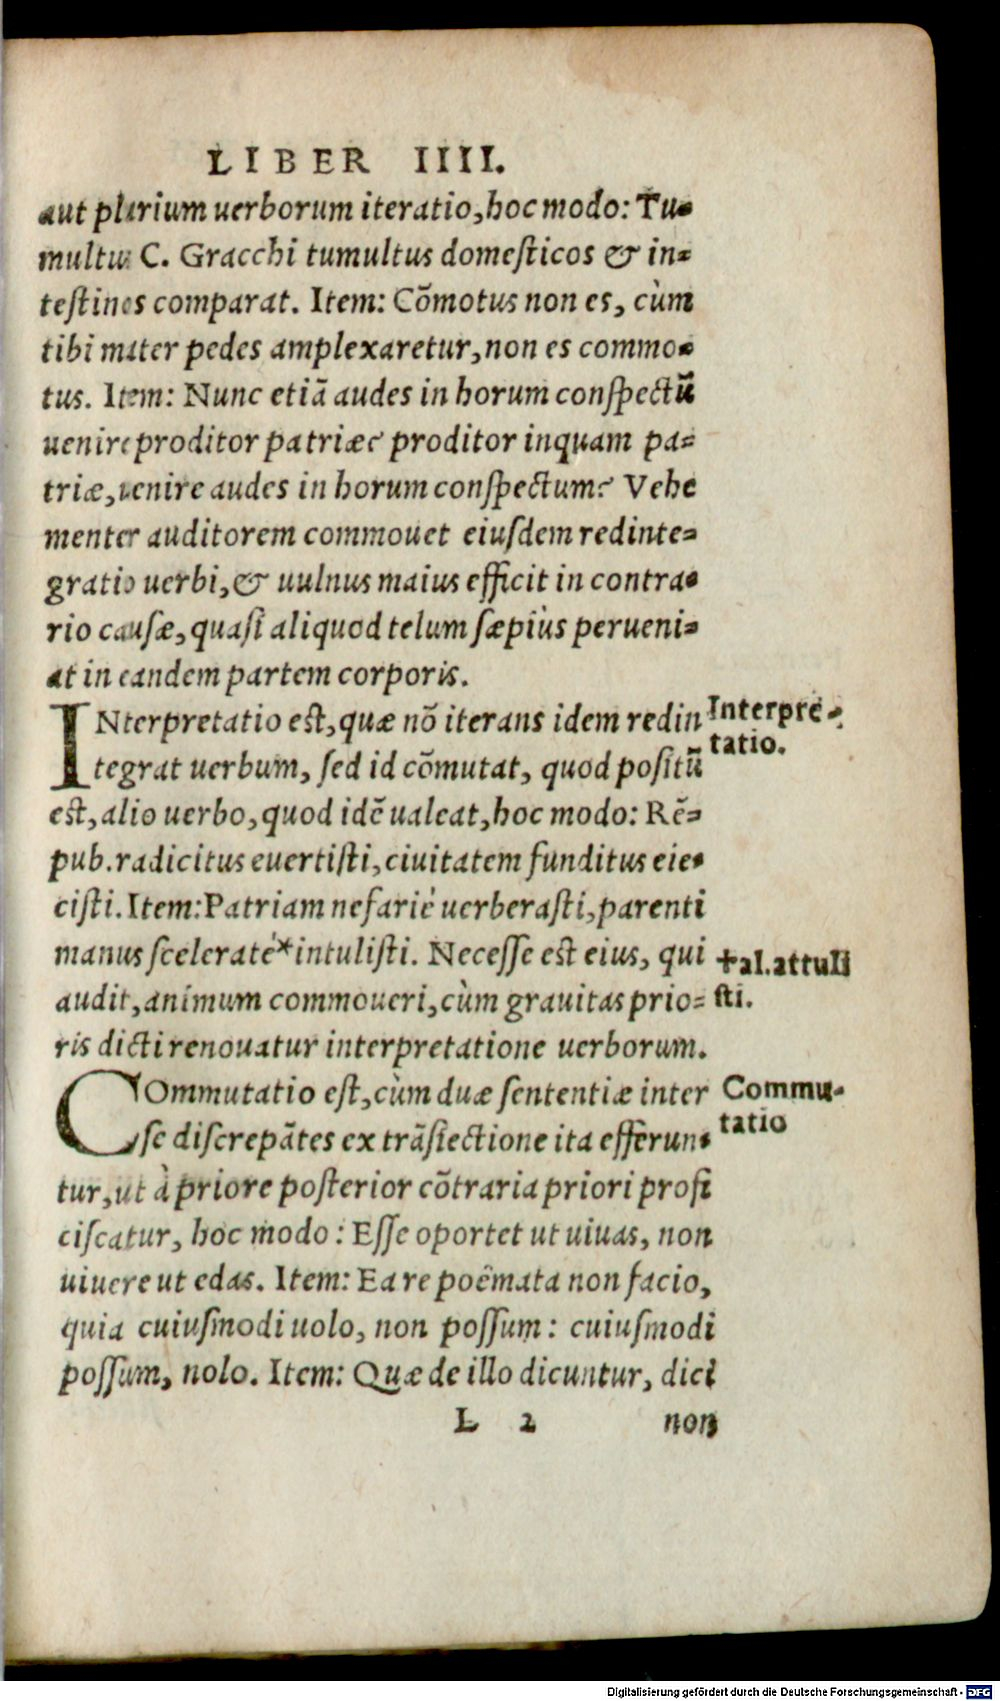 LIBER IIII.
aut plurium uerborum iteratio, hoc modo: Tu-
multus C. Gracchi tumultus domesticos & in-
testinos comparat. Item: Cõmotus non es, cùm
tibi mater pedes amplexaretur, non es commo-
tus. Item: Nunc etiã audes in horum conspectũ
uenire proditor patriæ? proditor inquam pa-
triæ, uenire audes in horum conspectum? Vehe
menter auditorem commouet eiusdem redinte-
gratio uerbi, & uulnus maius efficit in contra-
rio causæ, quasi aliquod telum sæpiùs perueni-
at in eandem partem corporis.
INterpretatio est, quæ nõ iterans idem redin
Interpre-
tatio.
tegrat uerbum, sed id cõmutat, quod positũ
est, alio uerbo, quod idẽ ualeat, hoc modo: Rẽ-
pub. radicitus euertisti, ciuitatem funditus eie-
cisti. Item: Patriam nefariè uerberasti, parenti
manus sceleratè* intulisti. Necesse est eius, qui
+al. attuli
sti.
audit, animum commoueri, cùm grauitas prio-
ris dicti renouatur interpretatione uerborum.
COmmutatio est, cùm duæ sententiæ inter
Commu-
tatio
se discrepãtes ex trãsiectione ita efferun-
tur, ut à priore posterior cõtraria priori profi
ciscatur, hoc modo: Esse oportet ut uiuas, non
uiuere ut edas. Item: Ea re poëmata non facio,
quia cuiusmodi uolo, non possum: cuiusmodi
possum, nolo. Item: Quæ de illo dicuntur, dici
L 2 non
Digitalisierung gefördert durch die Deutsche Forschungsgemeinschaft - DFG